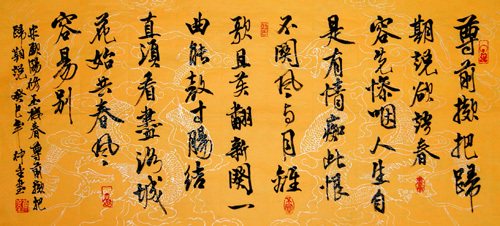 尊前擬把歸
期說欲語春
容先慘咽人生自
是有情痴此恨
不関風与月離
歌且莫翻新闋一
曲能教寸腸結
直須看盡洛城
花始共春風
容易别
宋歐陽修玉楼春尊前擬把
歸期說 癸巳年